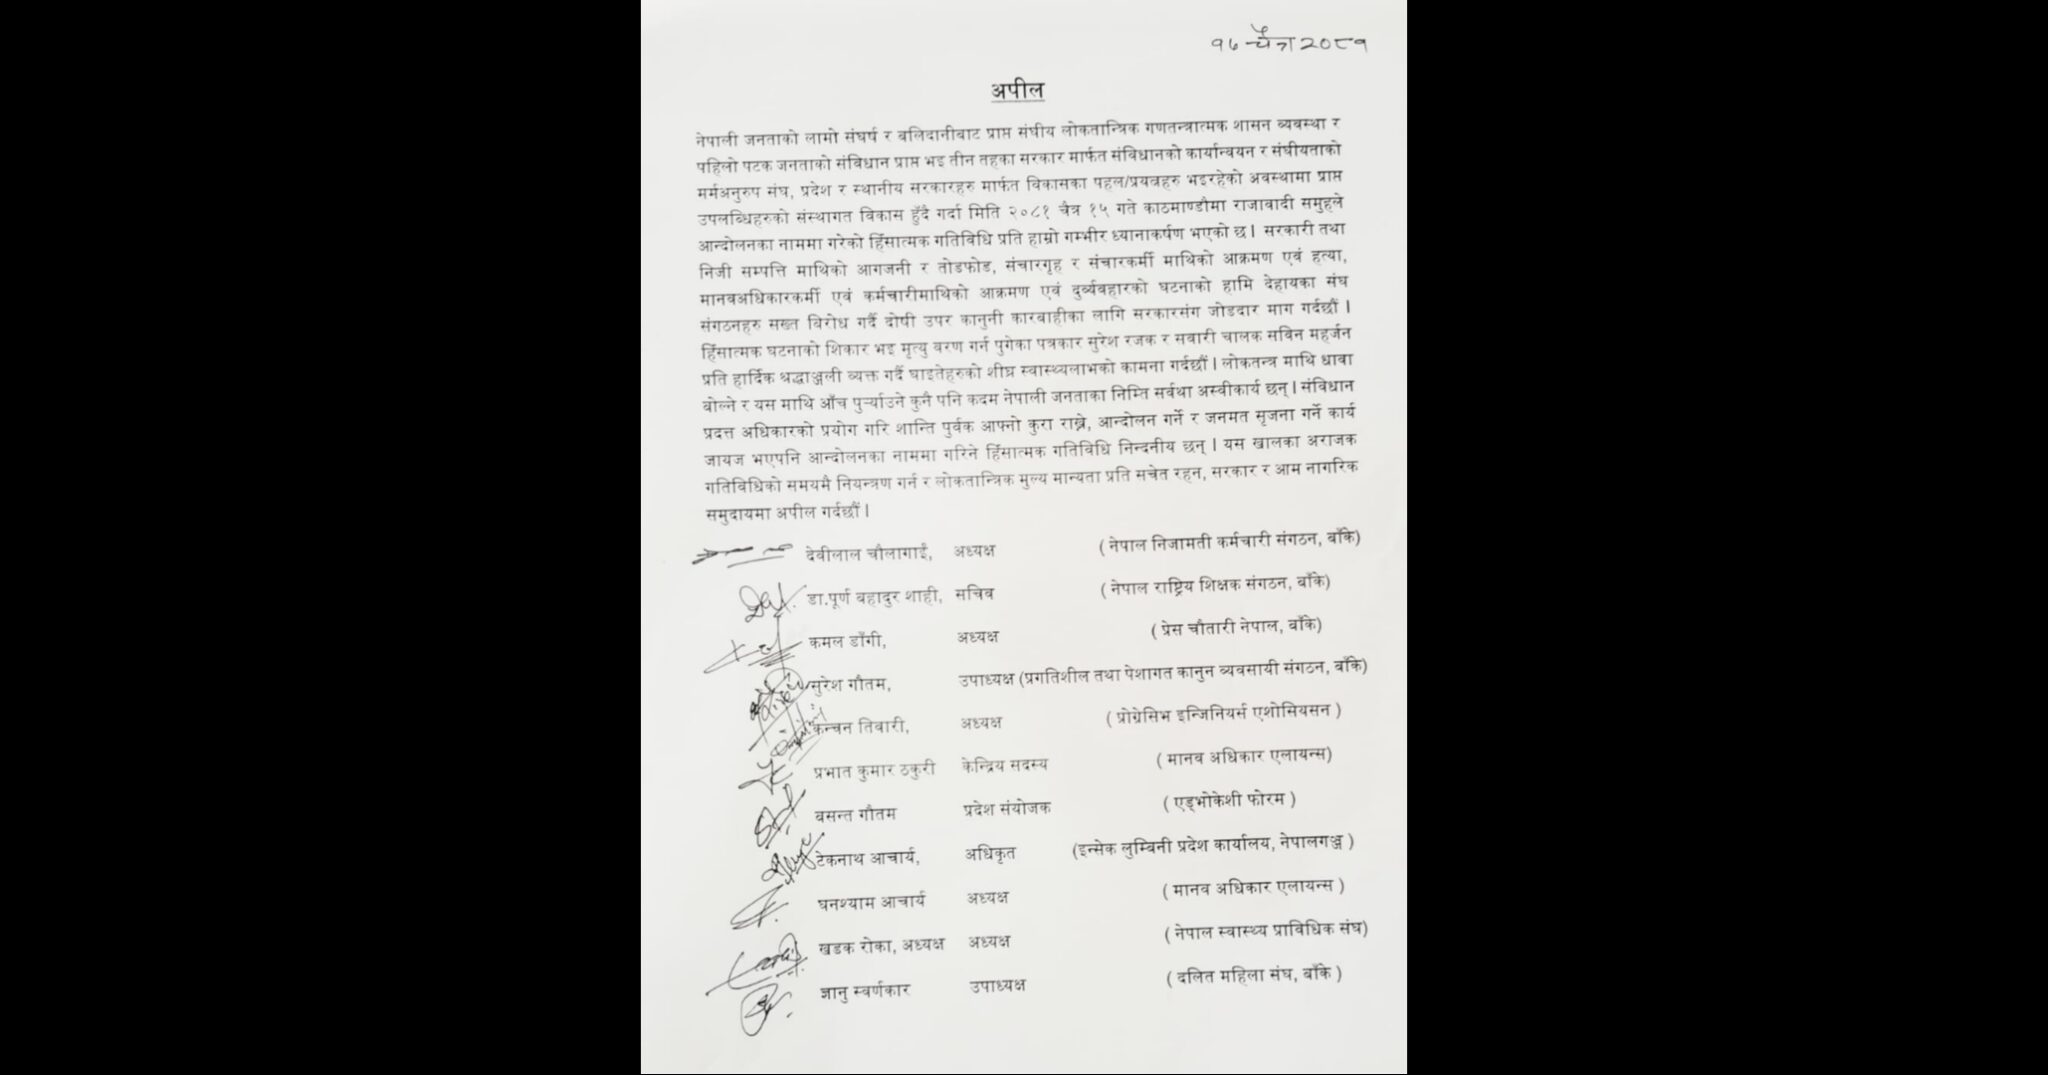 १६ चैत्र २०८१
अपील
नेपाली जनताको लामो संघर्ष र बलिदानीबाट प्राप्त संघीय लोकतान्त्रिक गणतन्त्रात्मक शासन व्यवस्था र
पहिलो पटक जनताको संविधान प्राप्त भइ तीन तहका सरकार मार्फत संविधानको कार्यान्वयन र संघीयताको
मर्मअनुरुप संघ, प्रदेश र स्थानीय सरकारहरु मार्फत विकासका पहल/प्रयत्नहरु भइरहेको अवस्थामा प्राप्त
उपलब्धिहरुको संस्थागत विकास हुँदै गर्दा मिति २०८१ चैत्र १५ गते काठमाण्डौमा राजावादी समुहले
आन्दोलनका नाममा गरेको हिंसात्मक गतिविधि प्रति हाम्रो गम्भीर ध्यानाकर्षण भएको छ। सरकारी तथा
निजी सम्पत्ति माथिको आगजनी र तोडफोड, संचारगृह र संचारकर्मी माथिको आक्रमण एवं हत्या,
मानवअधिकारकर्मी एवं कर्मचारीमाथिको आक्रमण एवं दुर्व्यवहारको घटनाको हामि देहायका संघ
संगठनहरु सख्त बिरोध गर्दै दोषी उपर कानुनी कारबाहीका लागि सरकारसंग जोडदार माग गर्दछौं ।
हिंसात्मक घटनाको शिकार भइ मृत्यु वरण गर्न पुगेका पत्रकार सुरेश रजक र सवारी चालक सविन महर्जन
प्रति हार्दिक श्रद्धाञ्जली व्यक्त गर्दै घाइतेहरुको शीघ्र स्वास्थ्यलाभको कामना गर्दछौं । लोकतन्त्र माथि धावा
बोल्ने र यस माथि आँच पुर्‍याउने कुनै पनि कदम नेपाली जनताका निम्ति सर्वथा अस्वीकार्य छन् । संविधान
प्रदत्त अधिकारको प्रयोग गरि शान्ति पुर्वक आफ्नो कुरा राख्ने, आन्दोलन गर्ने र जनमत सृजना गर्ने कार्य
जायज भएपनि आन्दोलनका नाममा गरिने हिंसात्मक गतिविधि निन्दनीय छन् । यस खालका अराजक
गतिविधिको समयमै नियन्त्रण गर्न र लोकतान्त्रिक मुल्य मान्यता प्रति सचेत रहन, सरकार र आम नागरिक
समुदायमा अपील गर्दछौं ।
देवीलाल चौलागाईं, अध्यक्ष ( नेपाल निजामती कर्मचारी संगठन, बाँके)
डा.पूर्ण बहादुर शाही, सचिव ( नेपाल राष्ट्रिय शिक्षक संगठन, बाँके)
कमल डाँगी, अध्यक्ष ( प्रेस चौतारी नेपाल, बाँके)
सुरेश गौतम, उपाध्यक्ष (प्रगतिशील तथा पेशागत कानुन व्यवसायी संगठन, बाँके)
कन्चन तिवारी, अध्यक्ष ( प्रोग्रेसिभ इन्जिनियर्स एशोसियसन )
प्रभात कुमार ठकुरी केन्द्रिय सदस्य ( मानव अधिकार एलायन्स)
बसन्त गौतम प्रदेश संयोजक ( एड्भोकेशी फोरम )
टेकनाथ आचार्य, अधिकृत (इन्सेक लुम्बिनी प्रदेश कार्यालय, नेपालगञ्ज )
घनश्याम आचार्य अध्यक्ष ( मानव अधिकार एलायन्स )
खडक रोका, अध्यक्ष अध्यक्ष ( नेपाल स्वास्थ्य प्राविधिक संघ)
ज्ञानु स्वर्णकार उपाध्यक्ष ( दलित महिला संघ, बाँके )